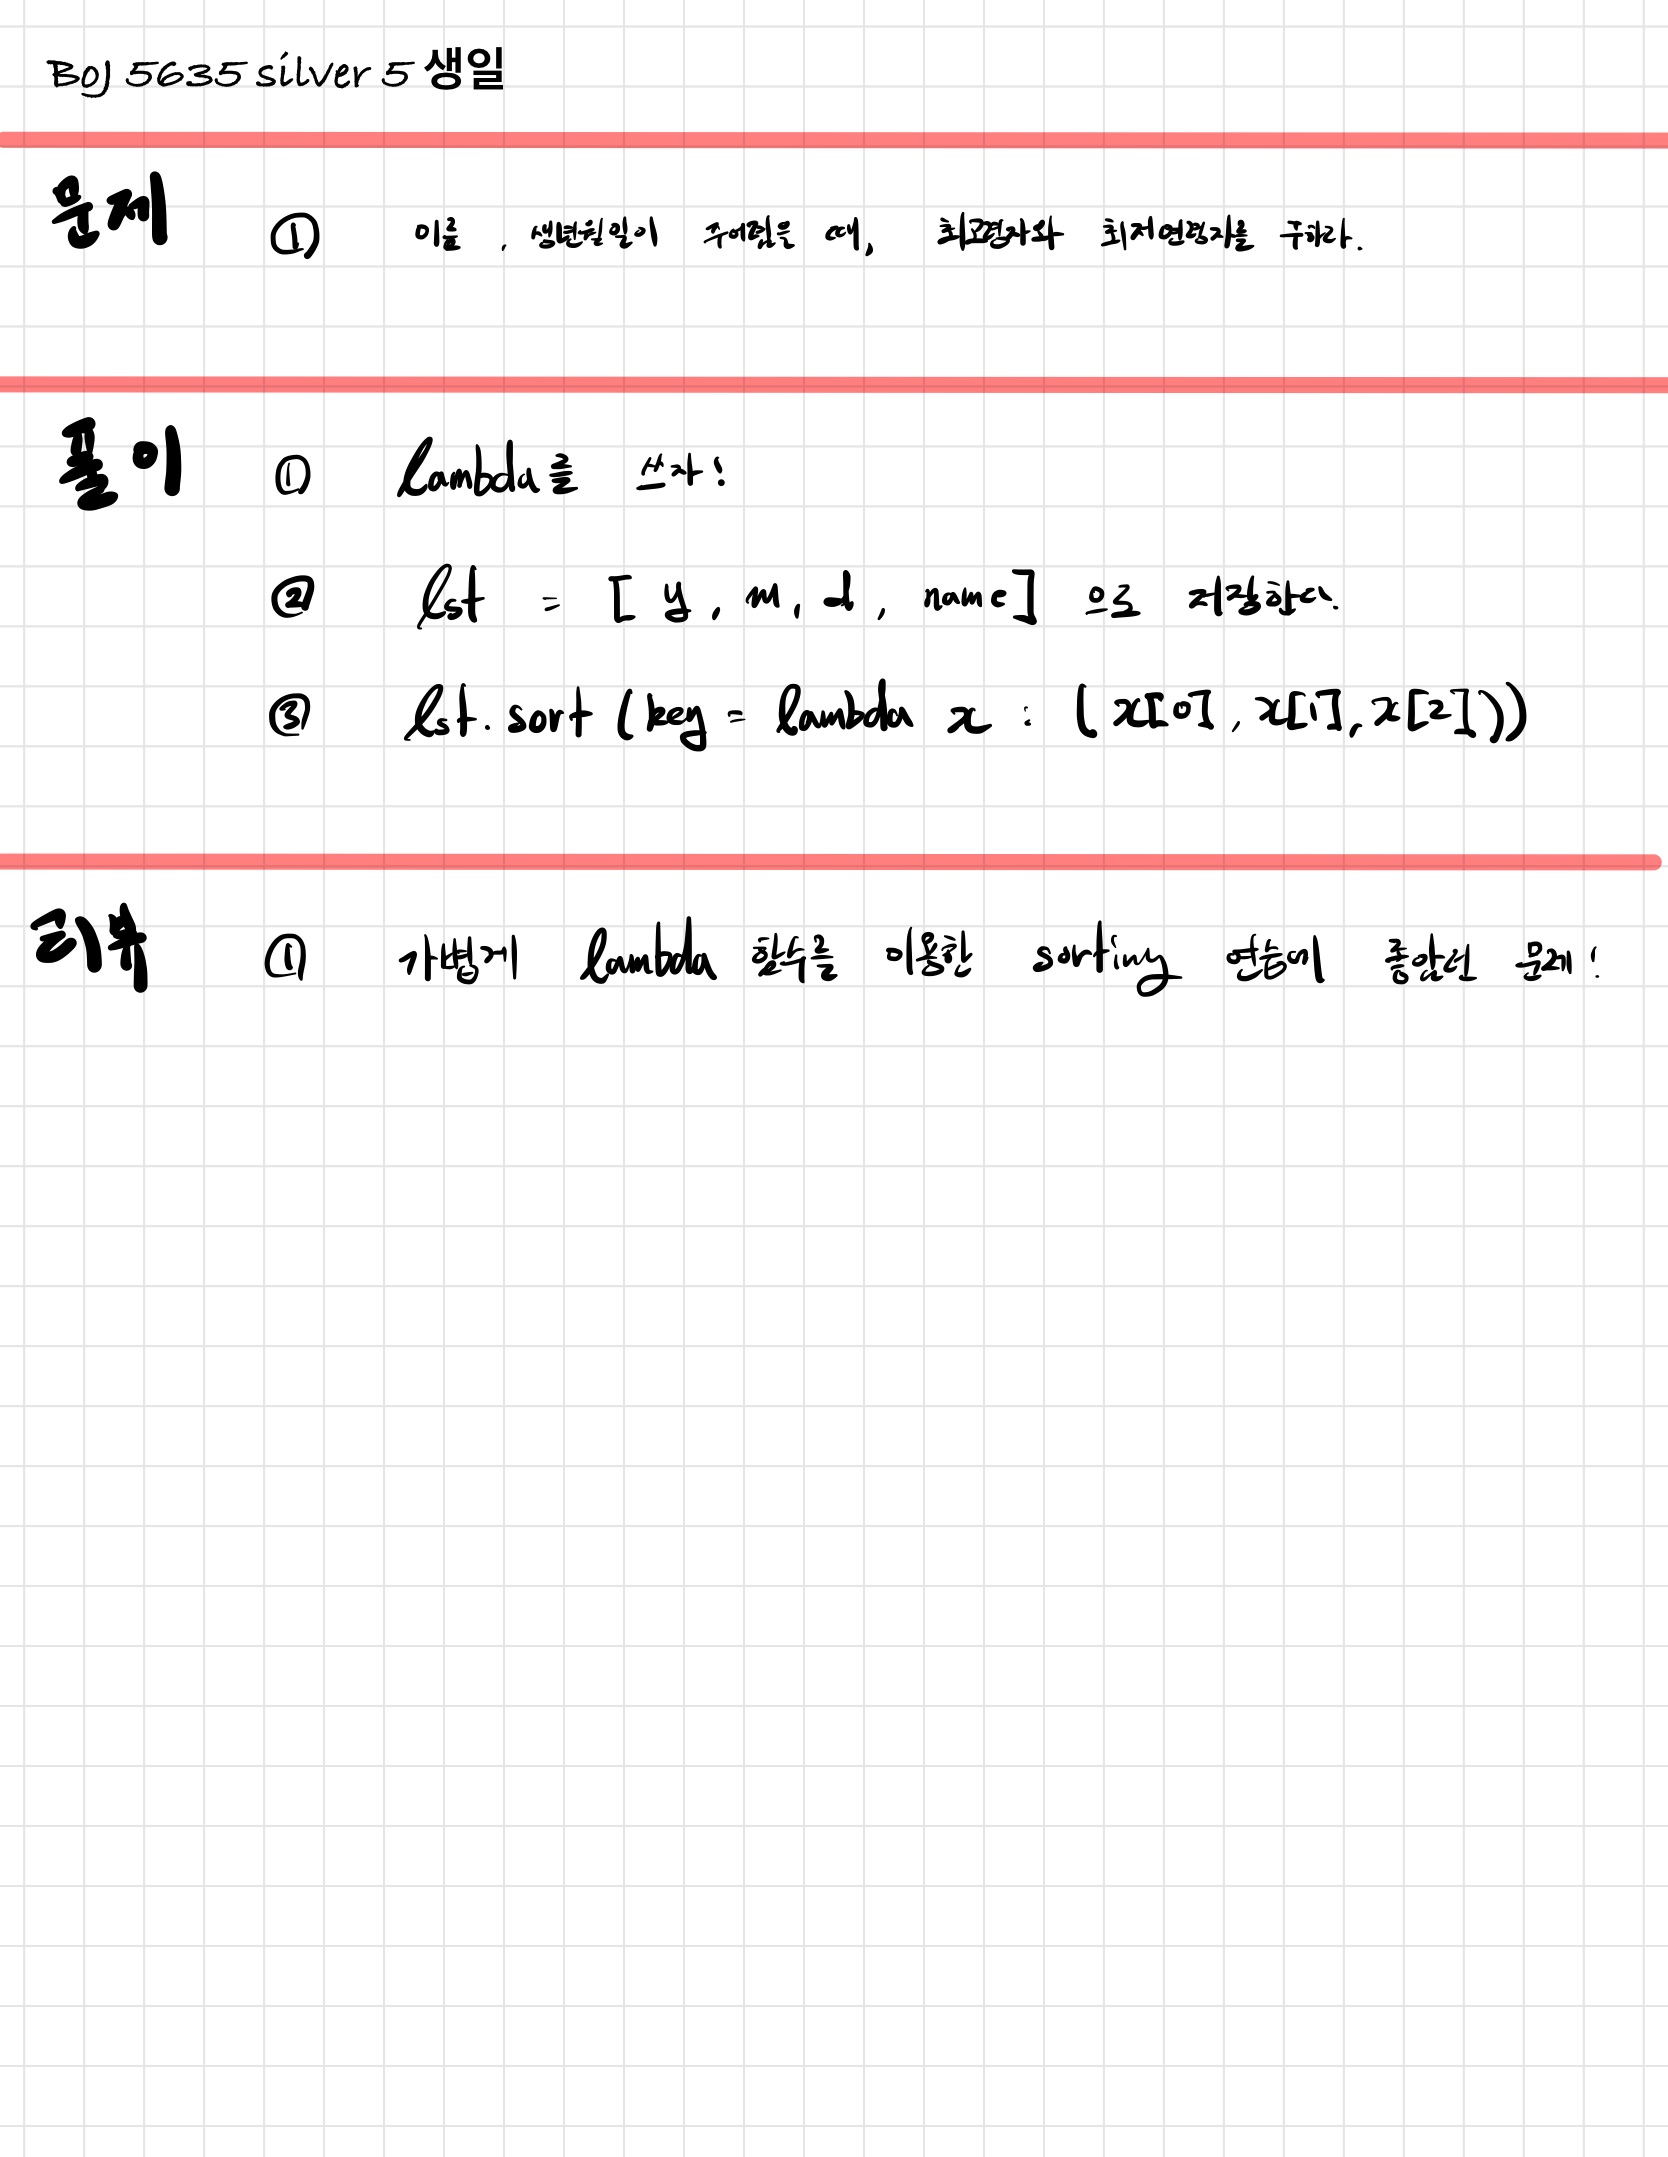 BOJ 5635 silver 5 생일
문제 ① 이름, 생년월일이 주어졌을 때, 최고령자와 최저연령자를 구하라.
풀이 ① lambda를 쓰자!
② lst = [y, m, d, name] 으로 저장한다.
③ lst.sort(key = lambda x : (x[0], x[1], x[2]))
리뷰 ① 가볍게 lambda 함수를 이용한 sorting 연습에 좋았던 문제!